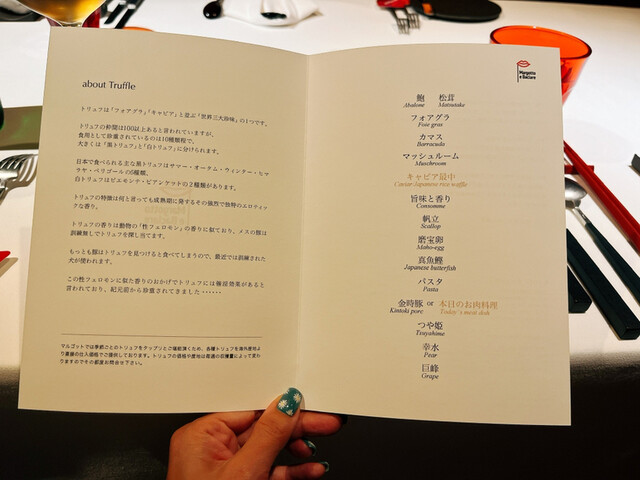 about Truffle
トリュフは「フォアグラ」「キャビア」と並ぶ「世界三大珍味」の1つです。
トリュフの仲間は100以上あると言われていますが、
食用として珍重されているのは10種類程で、
大きくは「黒トリュフ」と「白トリュフ」に分けられます。
日本で食べられる主な黒トリュフはサマー・オータム・ウィンター・ヒマ
ラヤ・ペリゴールの5種類、
白トリュフはピエモンテ・ビアンケットの2種類があります。
トリュフの特徴は何と言っても成熟期に発するその強烈で独特のエロティッ
クな香り。
トリュフの香りは動物の「性フェロモン」の香りに似ており、メスの豚は
訓練無しでトリュフを探し当てます。
もっとも豚はトリュフを見つけると食べてしまうので、最近では訓練された
犬が使われます。
この性フェロモンに似た香りのおかげでトリュフには催淫効果があると
言われており、紀元前から珍重されてきました・・・・・・
マルゴットでは季節ごとのトリュフをタップリとご堪能頂くため、各種トリュフを海外産地よ
り最速の仕入価格でご提供しております。トリュフの価格や産地は毎週の収穫量によって変わ
りますのでその都度お問合せ下さい。
Margotto
e Baciare
鮑 松茸
Abalone Matsutake
フォアグラ
Foie gras
カマス
Barracuda
マッシュルーム
Muschroom
キャビア最中
Caviar Japanese rice waffle
旨味と香り
Consomme
帆立
Scallop
磨宝卵
Maho-egg
真魚鰹
Japanese butterfish
パスタ
Pasta
金時豚 or 本日のお肉料理
Kintoki pore Today's meat dish
つや姫
Tsuyahime
幸水
Pear
巨峰
Grape